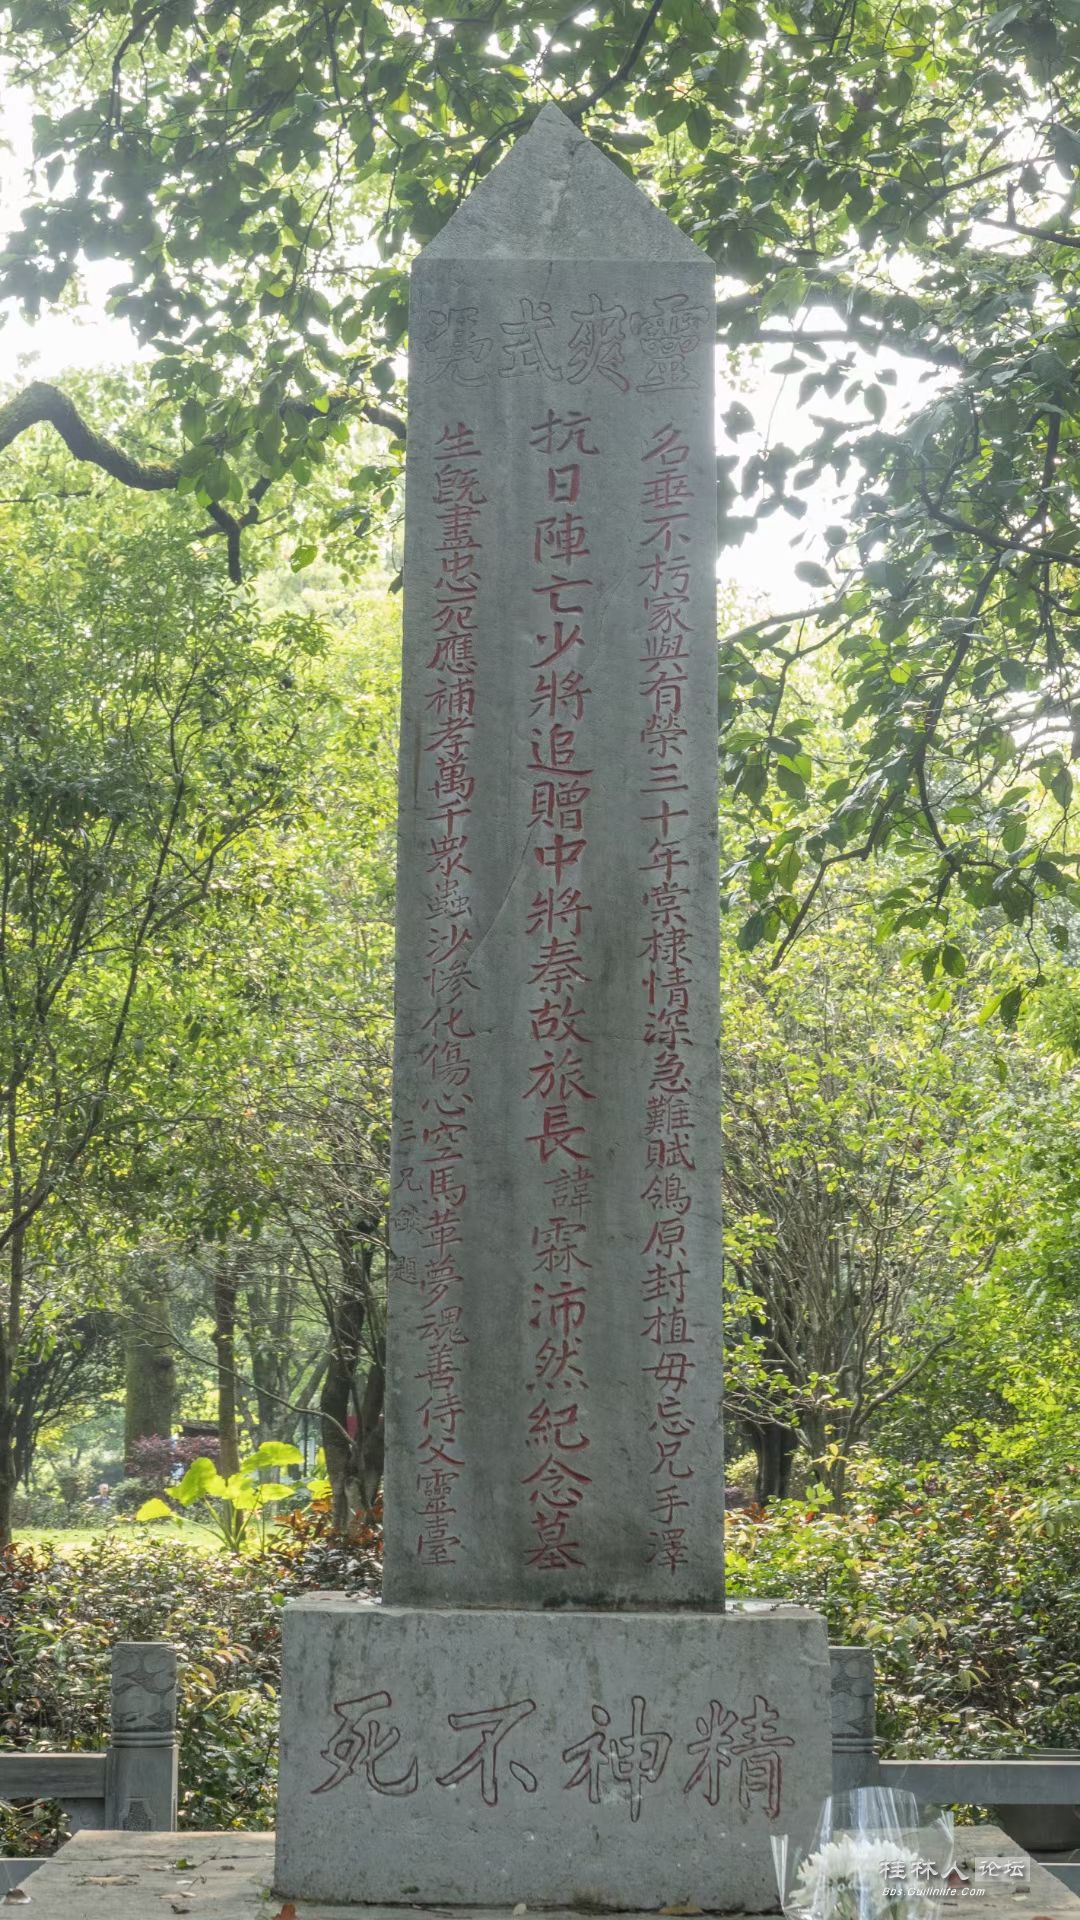 靈爽式憑
名垂不朽家與有榮三十年棠棣情深急難賦鴒原封植毋忘兄手澤
抗日陣亡少將追贈中將秦故旅長諱霖沛然紀念墓
生既盡忠死應補孝萬千衆蟲沙慘化傷心空馬革夢魂善侍父靈臺
三兄 題
精神不死
桂林人论坛
Bbs.Guilinlife.Com